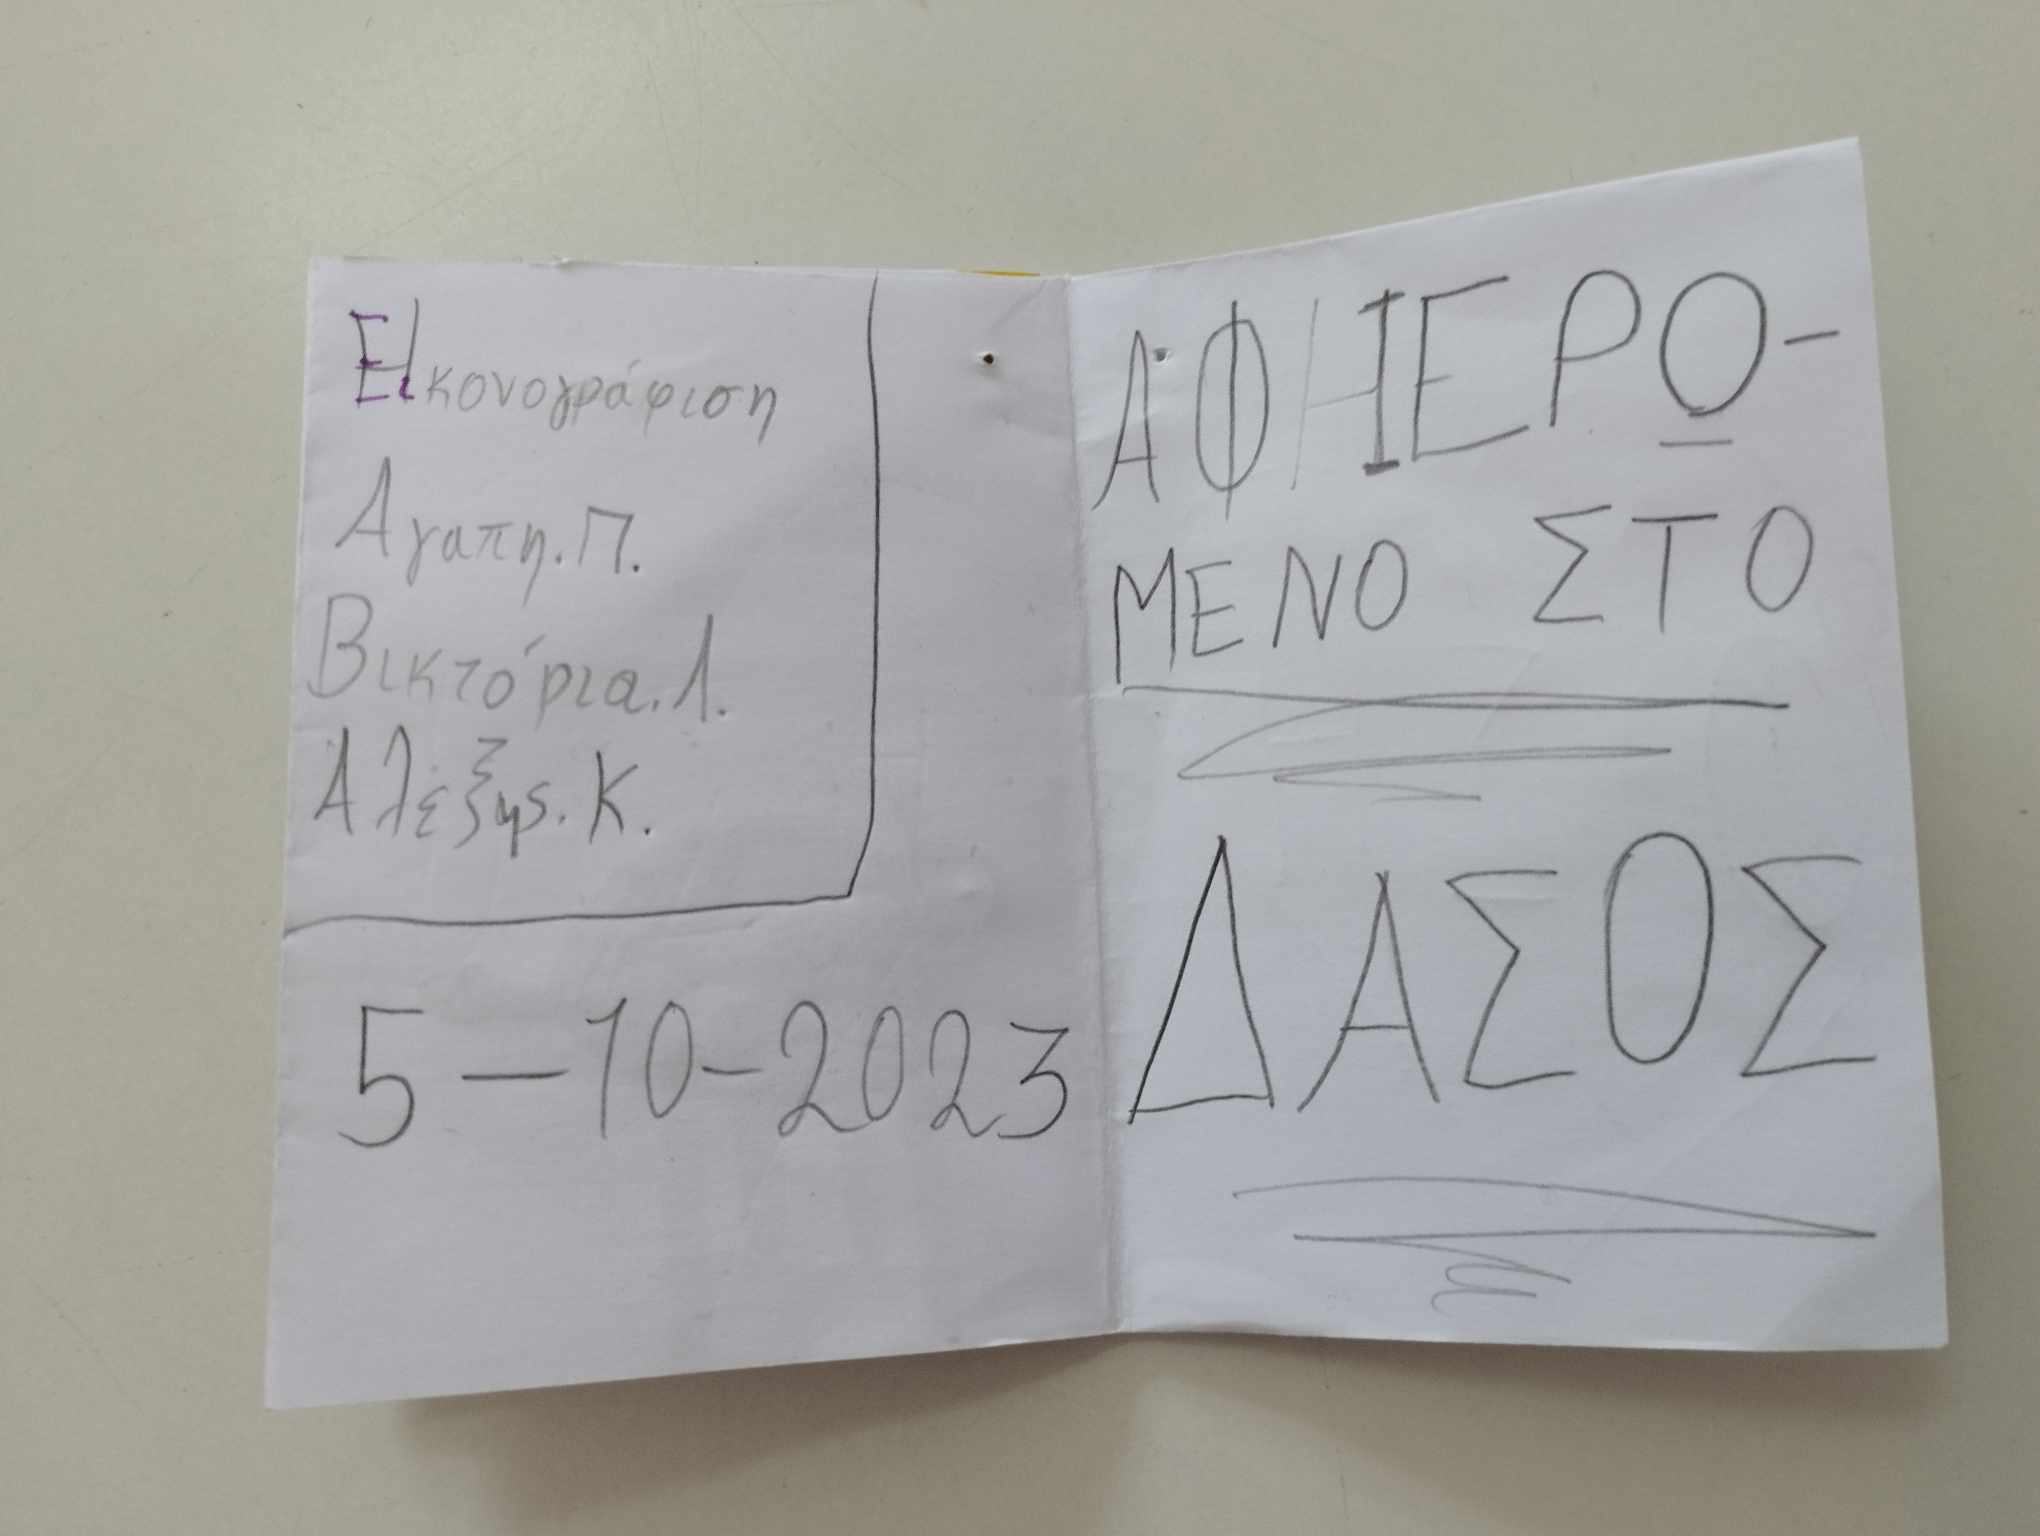 Εικονογράφιση
Αγαπη.Π.
Βικτόρια.Λ.
Αλέξης.Κ.
5-10-2023
ΑΦΙΕΡΩ-
ΜΕΝΟ ΣΤΟ
ΔΑΣΟΣ